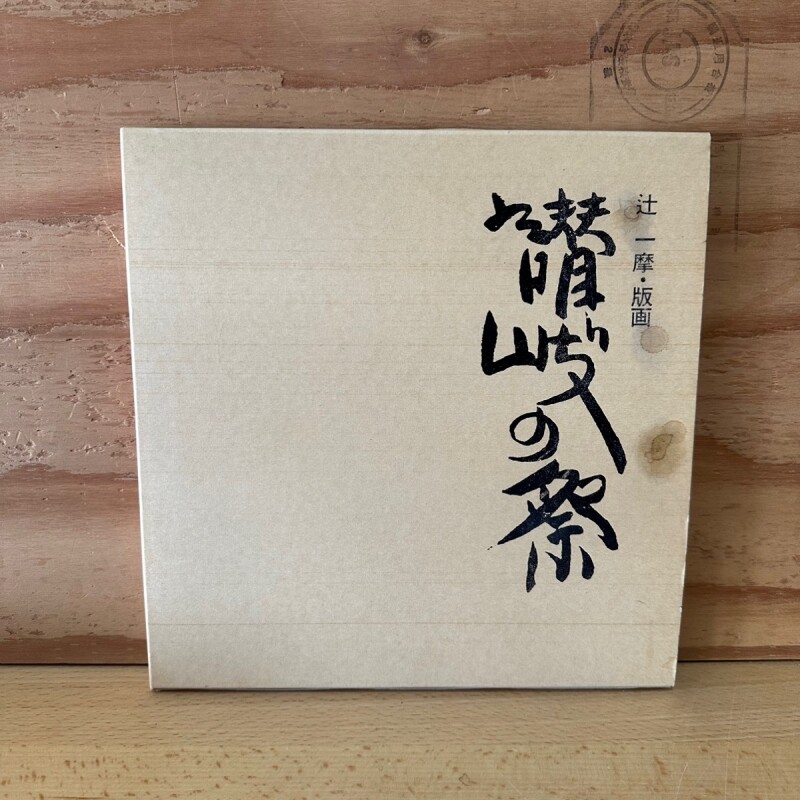 辻 一摩・版画
讃岐の祭